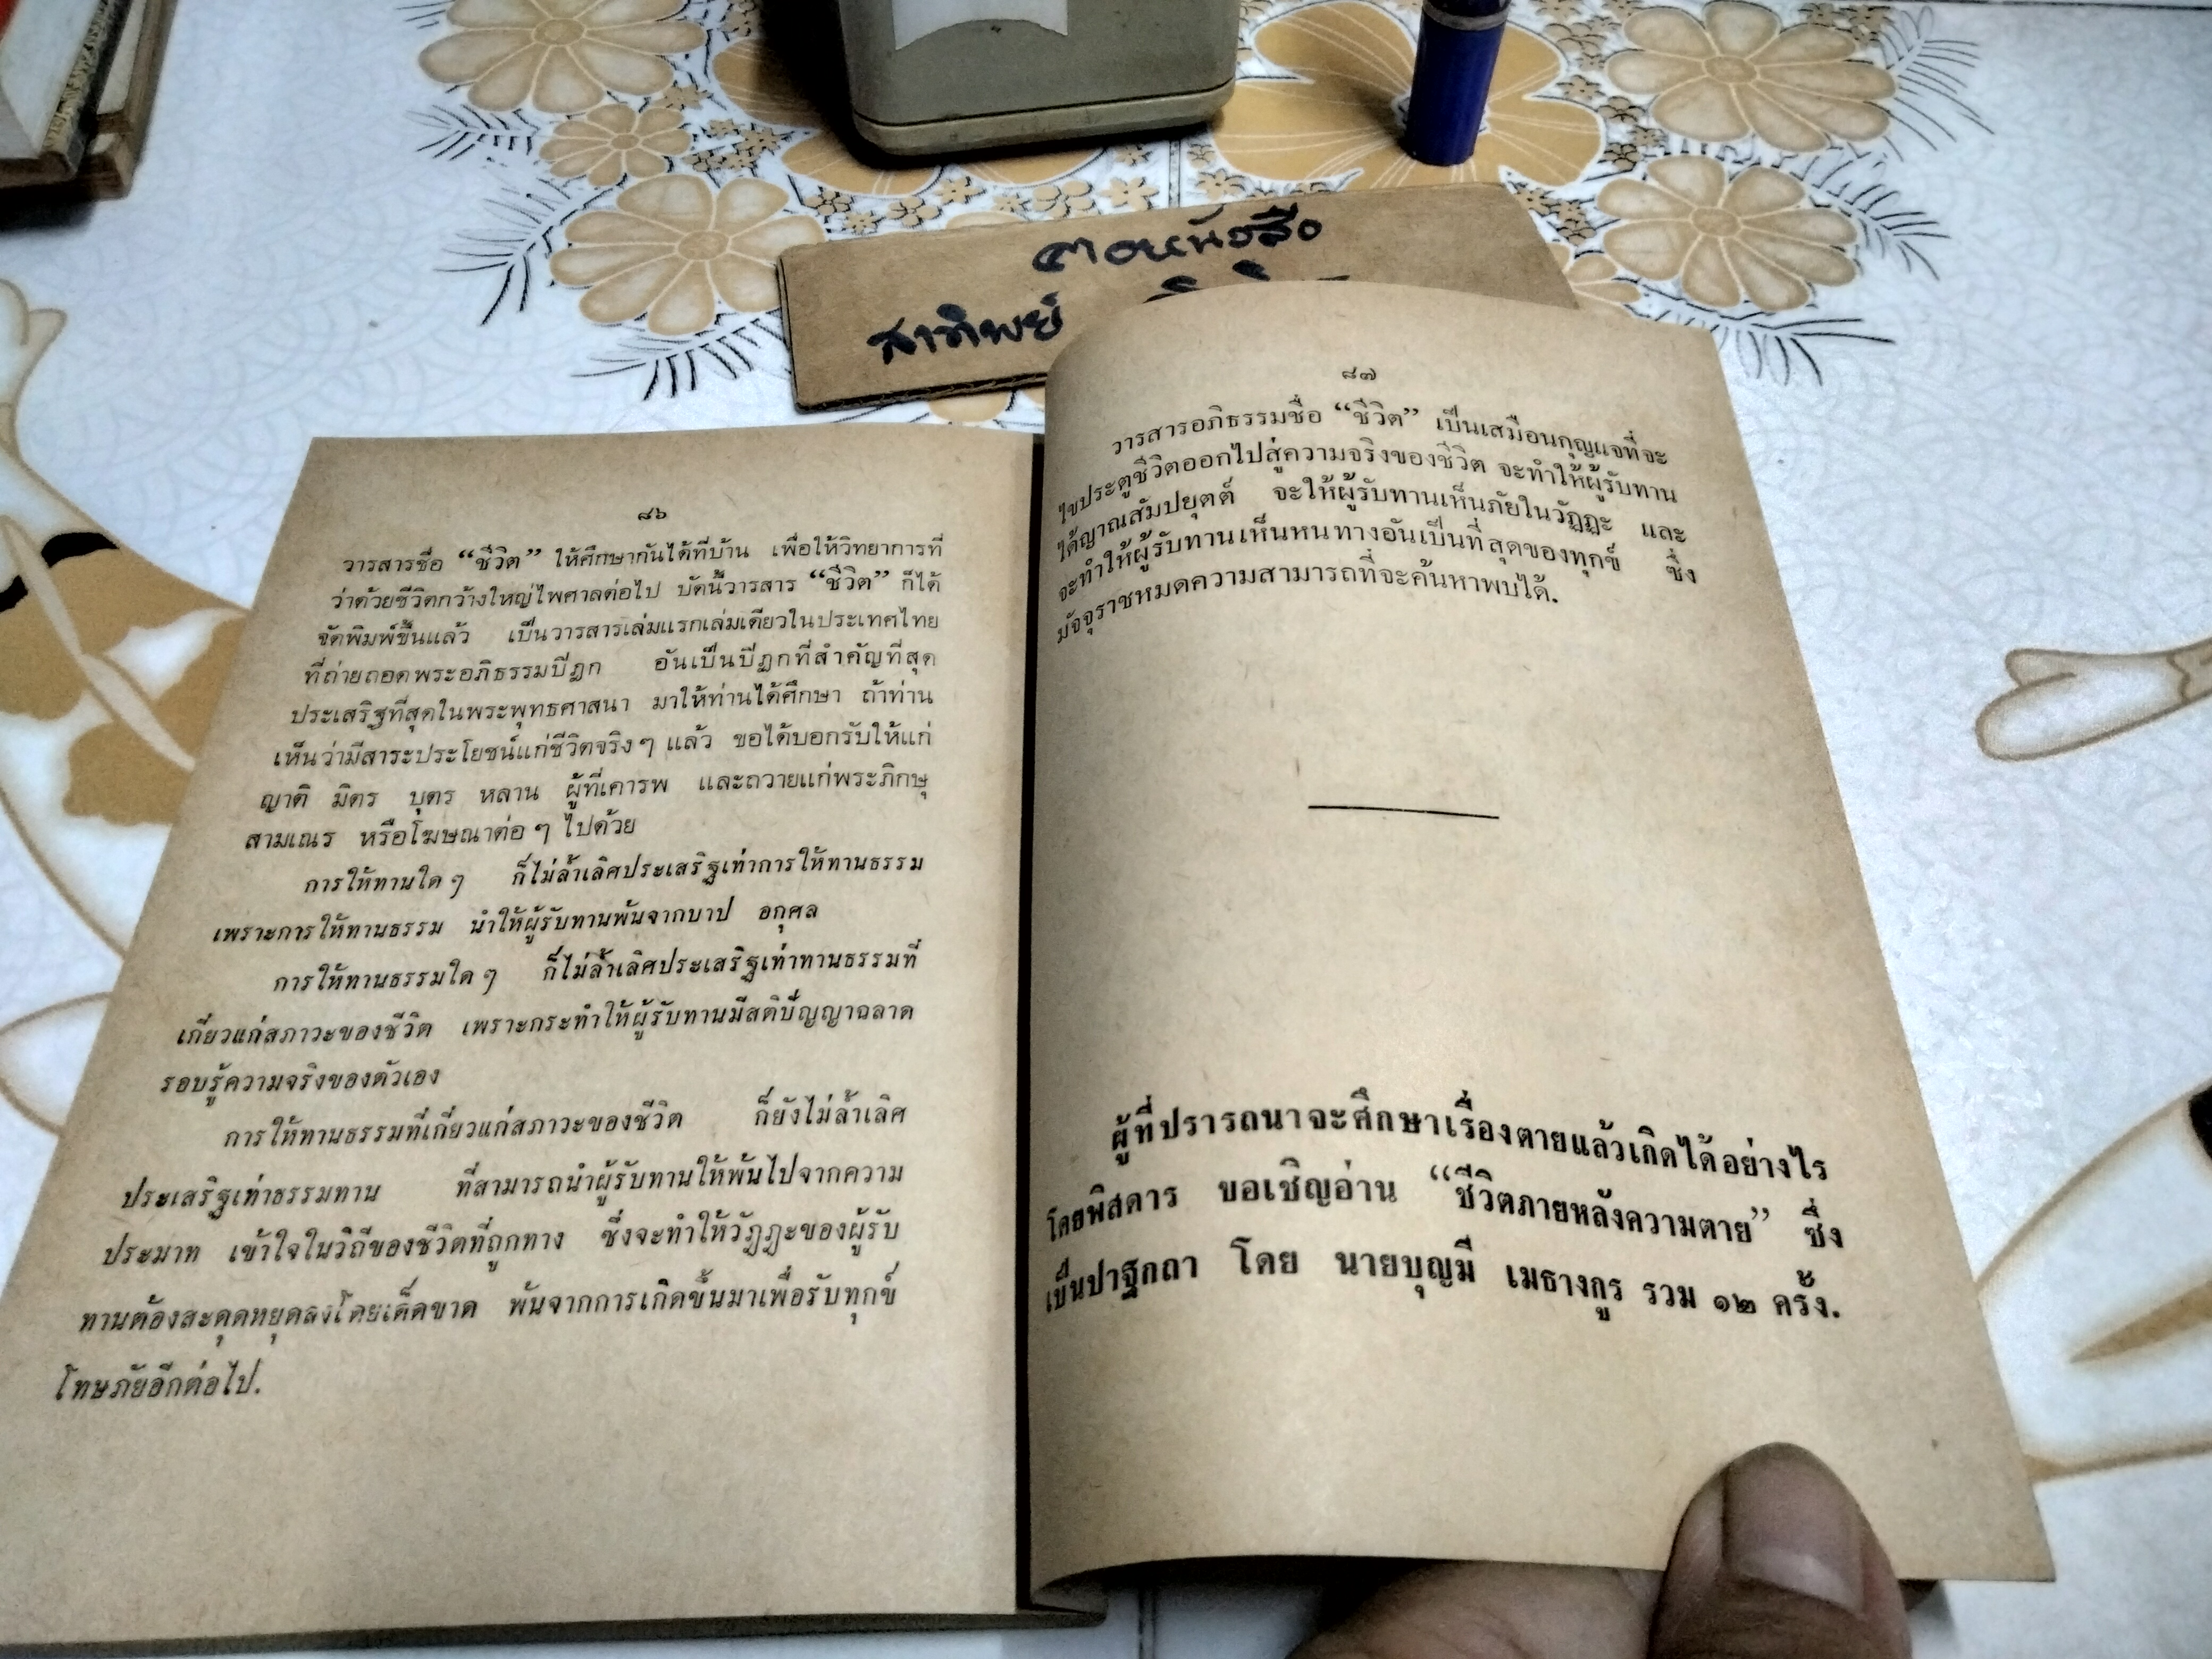 ตอหนังสือ
สาทิพย์
๘๖
วารสารชื่อ “ชีวิต” ให้ศึกษากันได้ที่บ้าน เพื่อให้วิทยาการที่
ว่าด้วยชีวิตกว้างใหญ่ไพศาลต่อไป บัดนี้วารสาร “ชีวิต” ก็ได้
จัดพิมพ์ขึ้นแล้ว เป็นวารสารเล่มแรกเล่มเดียวในประเทศไทย
ที่ถ่ายถอดพระอภิธรรมปิฎก อันเป็นปิฎกที่สำคัญที่สุด
ประเสริฐที่สุดในพระพุทธศาสนา มาให้ท่านได้ศึกษา ถ้าท่าน
เห็นว่ามีสาระประโยชน์แก่ชีวิตจริงๆ แล้ว ขอได้บอกรับให้แก่
ญาติ มิตร บุตร หลาน ผู้ที่เคารพ และถวายแก่พระภิกษุ
สามเณร หรือโฆษณาต่อๆ ไปด้วย
การให้ทานใดๆ ก็ไม่ล้ำเลิศประเสริฐเท่าการให้ทานธรรม
เพราะการให้ทานธรรม นำให้ผู้รับทานพ้นจากบาป อกุศล
การให้ทานธรรมใดๆ ก็ไม่ล้ำเลิศประเสริฐเท่าทานธรรมที่
เกี่ยวแก่สภาวะของชีวิต เพราะกระทำให้ผู้รับทานมีสติปัญญาฉลาด
รอบรู้ความจริงของตัวเอง
การให้ทานธรรมที่เกี่ยวแก่สภาวะของชีวิต ก็ยังไม่ล้ำเลิศ
ประเสริฐเท่าธรรมทาน ที่สามารถนำผู้รับทานให้พ้นไปจากความ
ประมาท เข้าใจในวิถีของชีวิตที่ถูกทาง ซึ่งจะทำให้วัฏฏะของผู้รับ
ทานต้องสะดุดหยุดลงโดยเด็ดขาด พ้นจากการเกิดขึ้นมาเพื่อรับทุกข์
โทษภัยอีกต่อไป.
๘๗
วารสารอภิธรรมชื่อ “ชีวิต” เป็นเสมือนกุญแจที่จะ
ไขประตูชีวิตออกไปสู่ความจริงของชีวิต จะทำให้ผู้รับทาน
ได้ญาณสัมปยุตต์ จะให้ผู้รับทานเห็นภัยในวัฏฏะ และ
จะทำให้ผู้รับทานเห็นหนทางอันเป็นที่สุดของทุกข์ ซึ่ง
มัจจุราชหมดความสามารถที่จะค้นหาพบได้.
ผู้ที่ปรารถนาจะศึกษาเรื่องตายแล้วเกิดได้อย่างไร
โดยพิสดาร ขอเชิญอ่าน “ชีวิตภายหลังความตาย” ซึ่ง
เป็นปาฐกถา โดย นายบุญมี เมธางกูร รวม ๑๒ ครั้ง.